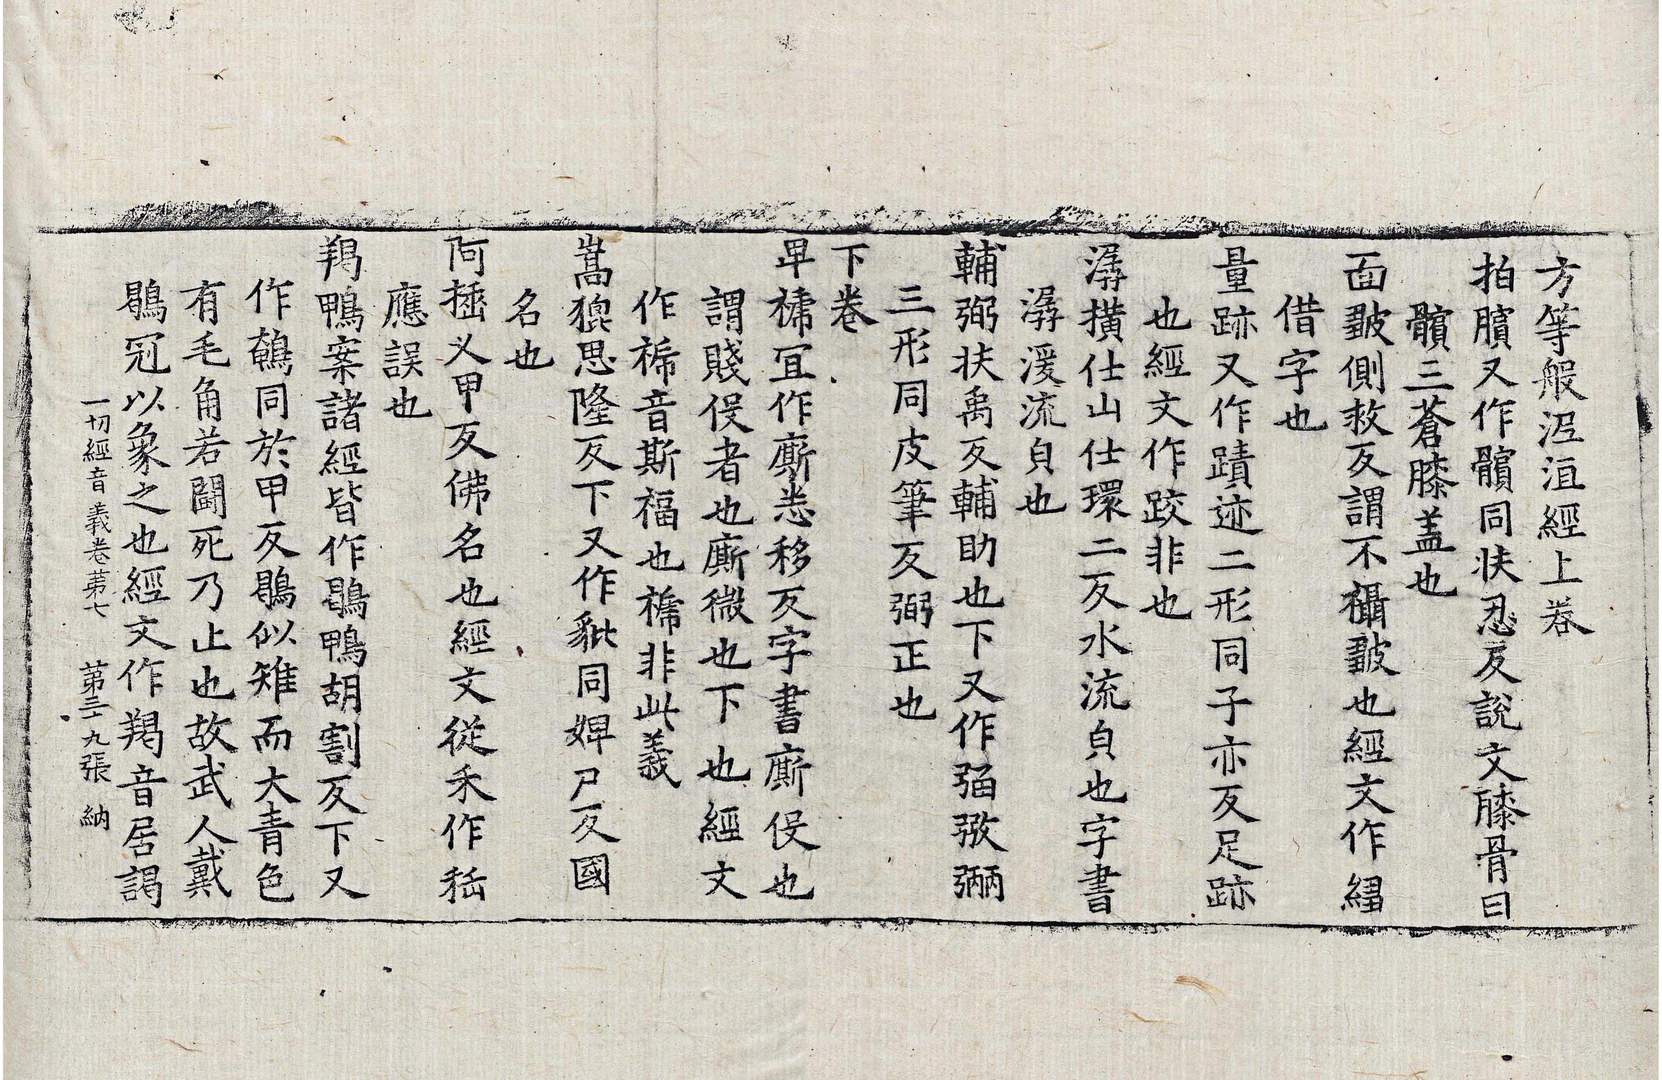 方等般泥洹經上卷
拍臏又作髕同扶忍反說文膝骨曰
髕三蒼膝盖也
面皺側救反謂不攝皺也經文作縐
借字也
量跡又作蹟迹二形同子亦反足跡
也經文作跤非也
潺㩇仕山仕環二反水流皃也字書
潺湲流皃也
輔弼扶禹反輔助也下又作㢸弻
三形同皮筆反弼正也
下卷
卑㾷冝作廝悉移反字書廝伇也
謂賤伇者也廝微也下也經文
作禠音斯福也禠非此義
嵩㹶思隆反下又作豼同婢尸反國
名也
阿插义甲反佛名也經文從禾作䅧
應誤也
羯鴨案諸經皆作鶡鴨胡割反下又
作鵪同於甲反鶡似雉而大青色
有毛角若鬪死乃止也故武人戴
鶡冠以象之也經文作羯音居謁
一切經音義卷苐七 苐三十九張 納